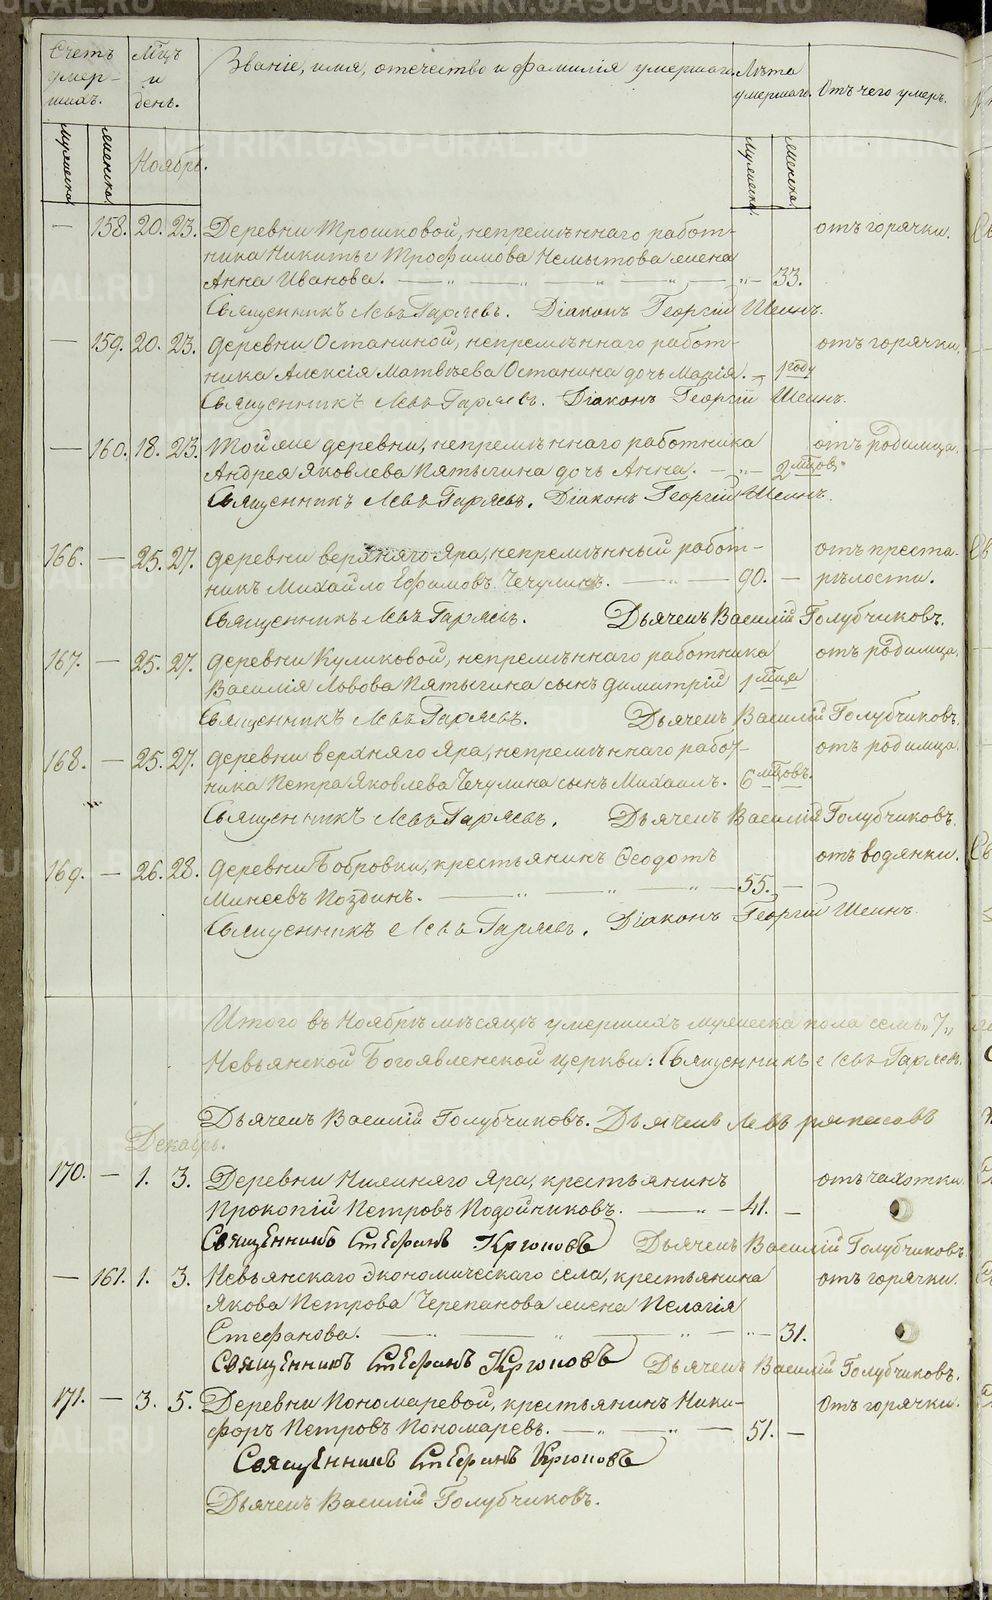 Счетъ умер-
шихъ.
Мцъ
и
день.
Званіе, имя, отечество и фамилія умершаго.
Лѣта
умершаго.
Отъ чего умеръ.
Мужеска
женска
Ноябрь.
Мужеска
женска
— 158. 20. 23. Деревни Трошковой, непремѣннаго работ- отъ горячки.
ника Никиты Трофимова Немытова жена
Анна Иванова. — „ — „ — „ — „ — 33.
Священникъ Левъ Гаряевъ. Діаконъ Георгій Шеинъ.
— 159. 20. 23. Деревни Останиной, непремѣннаго работ- отъ горячки.
ника Алексія Матвѣева Останина дочь Марія. — 1 году
Священникъ Левъ Гаряевъ. Діаконъ Георгій Шеинъ.
— 160. 18. 23. Той же деревни, непремѣннаго работника отъ родимца.
Андрея Яковлева Пятыгина дочь Анна. — „ — 2 мцовъ
Священникъ Левъ Гаряевъ. Діаконъ Георгій Шеинъ.
166. — 25. 27. Деревни верхняго Яра, непремѣнный работ- отъ преста-
никъ Михайло Ефимовъ Чечулинъ. — „ — 90. — рѣлости.
Священникъ Левъ Гаряевъ. Дьячекъ Василій Голубчиковъ.
167. — 25. 27. Деревни Куликовой, непремѣннаго работника отъ родимца.
Василія Львова Пятыгина сынъ Димитрій 1 мца
Священникъ Левъ Гаряевъ. Дьячекъ Василій Голубчиковъ.
168. — 25. 27. Деревни верхняго Яра, непремѣннаго работ- отъ родимца.
ника Петра Яковлева Чечулина сынъ Михаилъ. 6 мцовъ.
Священникъ Левъ Гаряевъ. Дьячекъ Василій Голубчиковъ.
169. — 26. 28. Деревни Бобровки, крестьянинъ Ѳеодотъ отъ водянки.
Минеевъ Поздинъ. — „ — „ — „ — 55. —
Священникъ Левъ Гаряевъ. Діаконъ Георгій Шеинъ.
Итого въ Ноябрѣ мѣсяцѣ умершихъ мужеска пола семь „7„
Невьянской Богоявленской церкви: Священникъ Левъ Гаряевъ.
Дьячекъ Василій Голубчиковъ. Дьячекъ Левъ
Декабрь.
170. — 1. 3. Деревни Нижняго Яра, крестьянинъ отъ чахотки.
Прокопій Петровъ Подойниковъ. — „ — 41. —
Священникъ Стефанъ Крюковъ Дьячекъ Василій Голубчиковъ.
— 161. 1. 3. Невьянскаго экономическаго села, крестьянина отъ горячки.
Якова Петрова Черепанова жена Пелагія
Стефанова. — „ — „ — „ — „ — 31.
Священникъ Стефанъ Крюковъ Дьячекъ Василій Голубчиковъ.
171. — 3. 5. Деревни Пономаревой, крестьянинъ Ники- отъ горячки.
форъ Петровъ Пономаревъ. — „ — „ — 51. —
Священникъ Стефанъ Крюковъ
Дьячекъ Василій Голубчиковъ.
METRIKI.GASO-URAL.RU